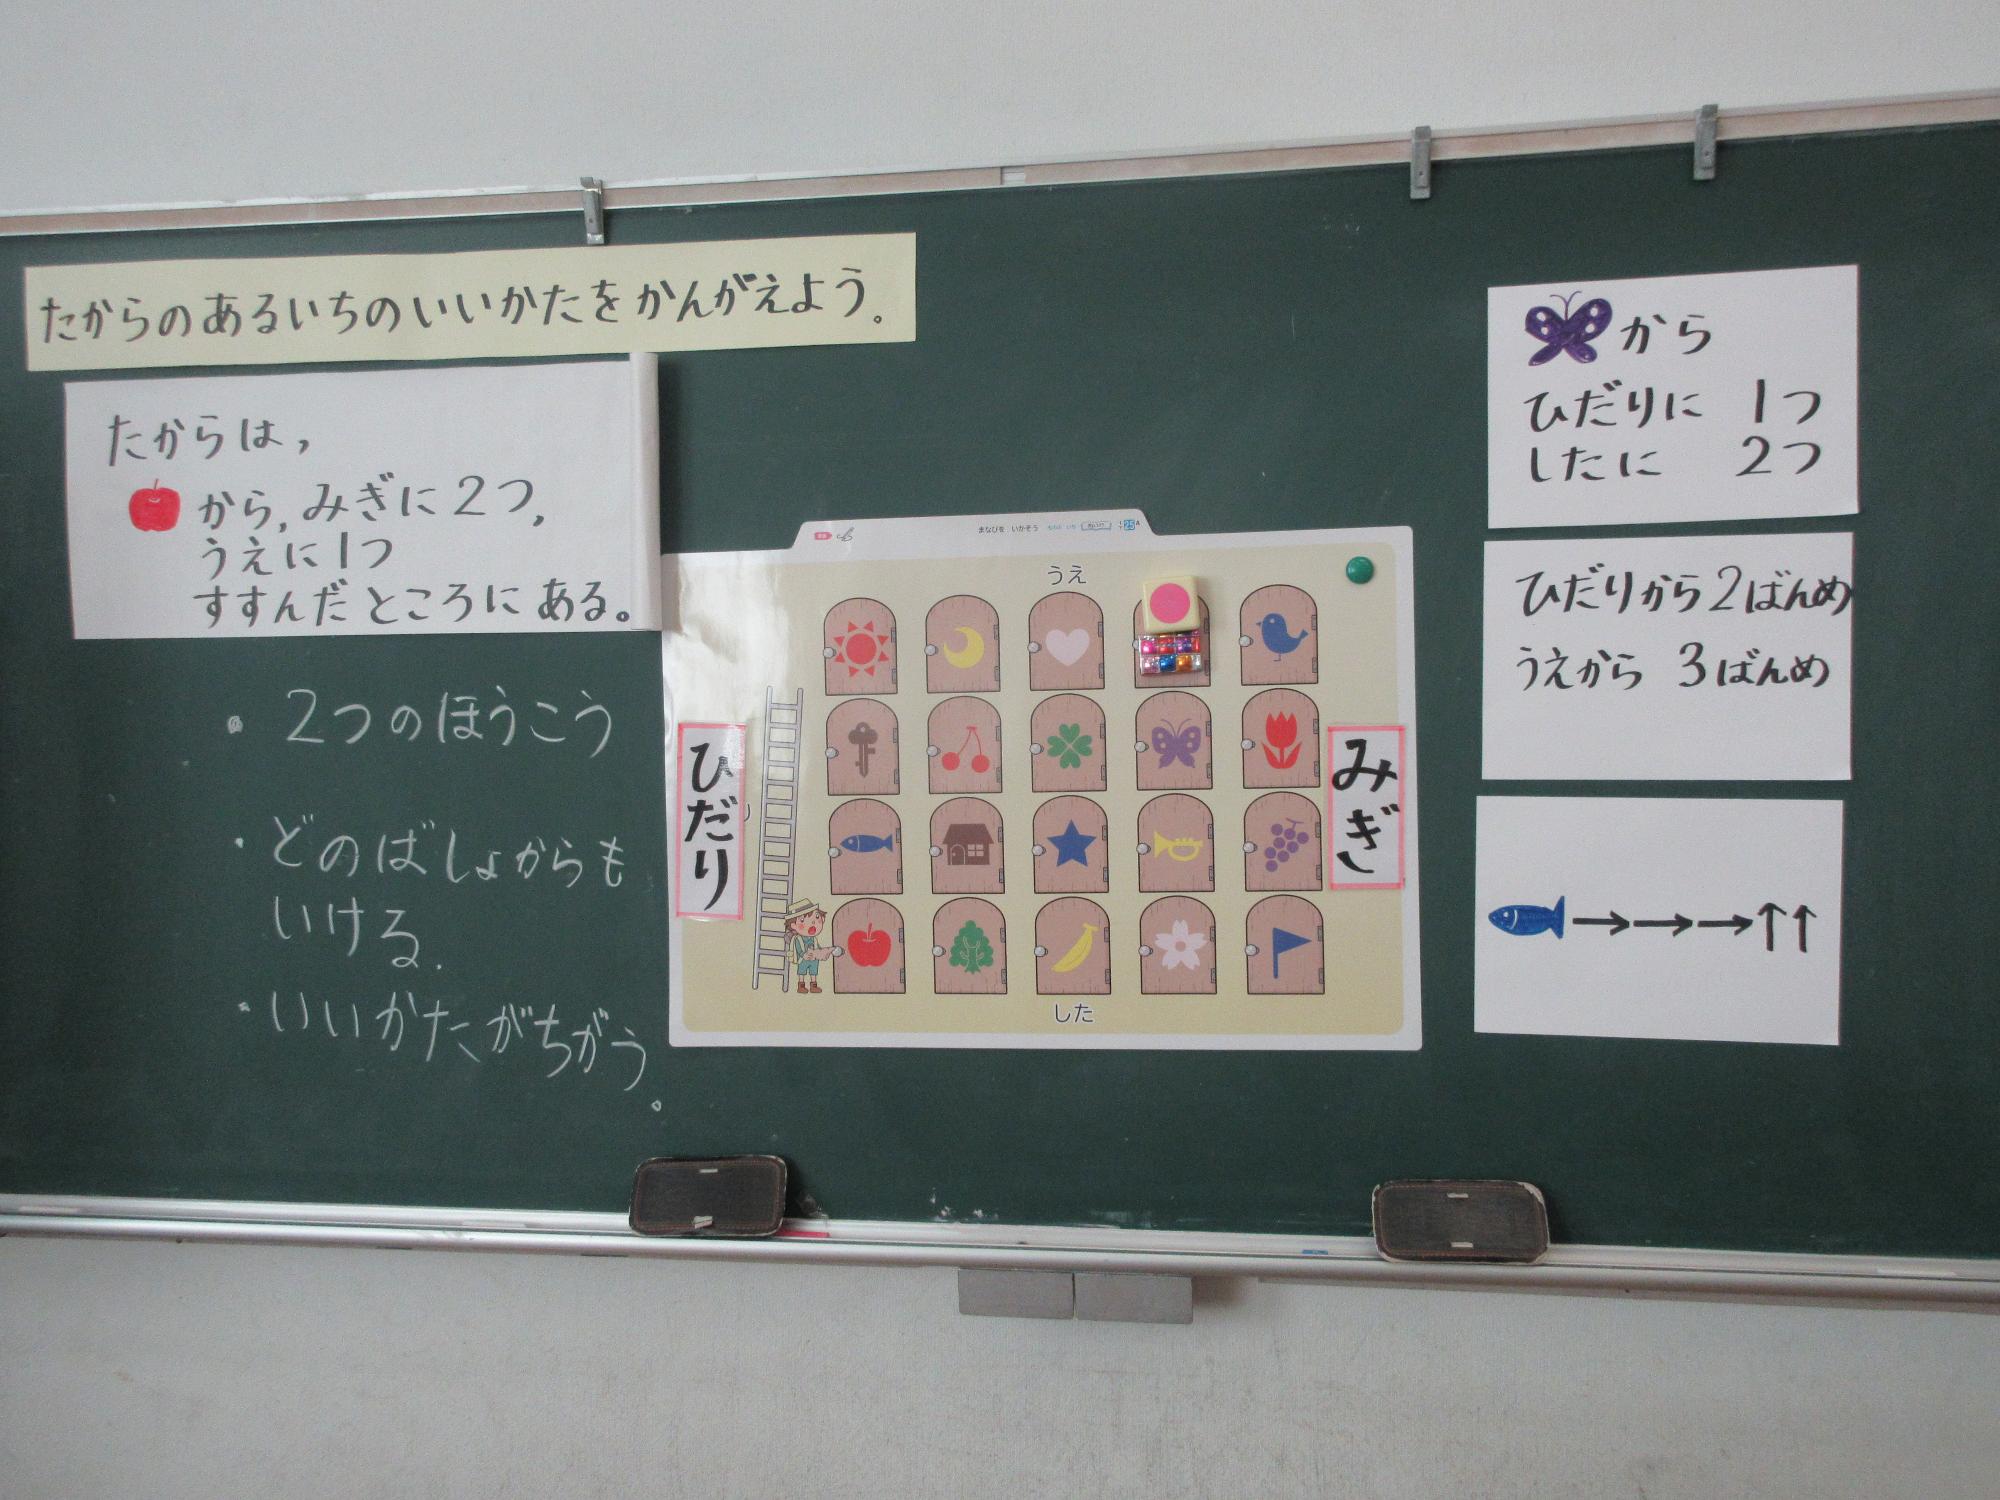 たからのあるいちのいいかたをかんがえよう。
たからは，
から，みぎに２つ，
うえに１つ
すすんだところにある。
・２つのほうこう
・どのばしょからも
いける.
・いいかたがちがう。
まなびを いかそう
うえ
ひだり
みぎ
した
から
ひだりに １つ
したに ２つ
ひだりから２ばんめ
うえから ３ばんめ
→→→↑↑